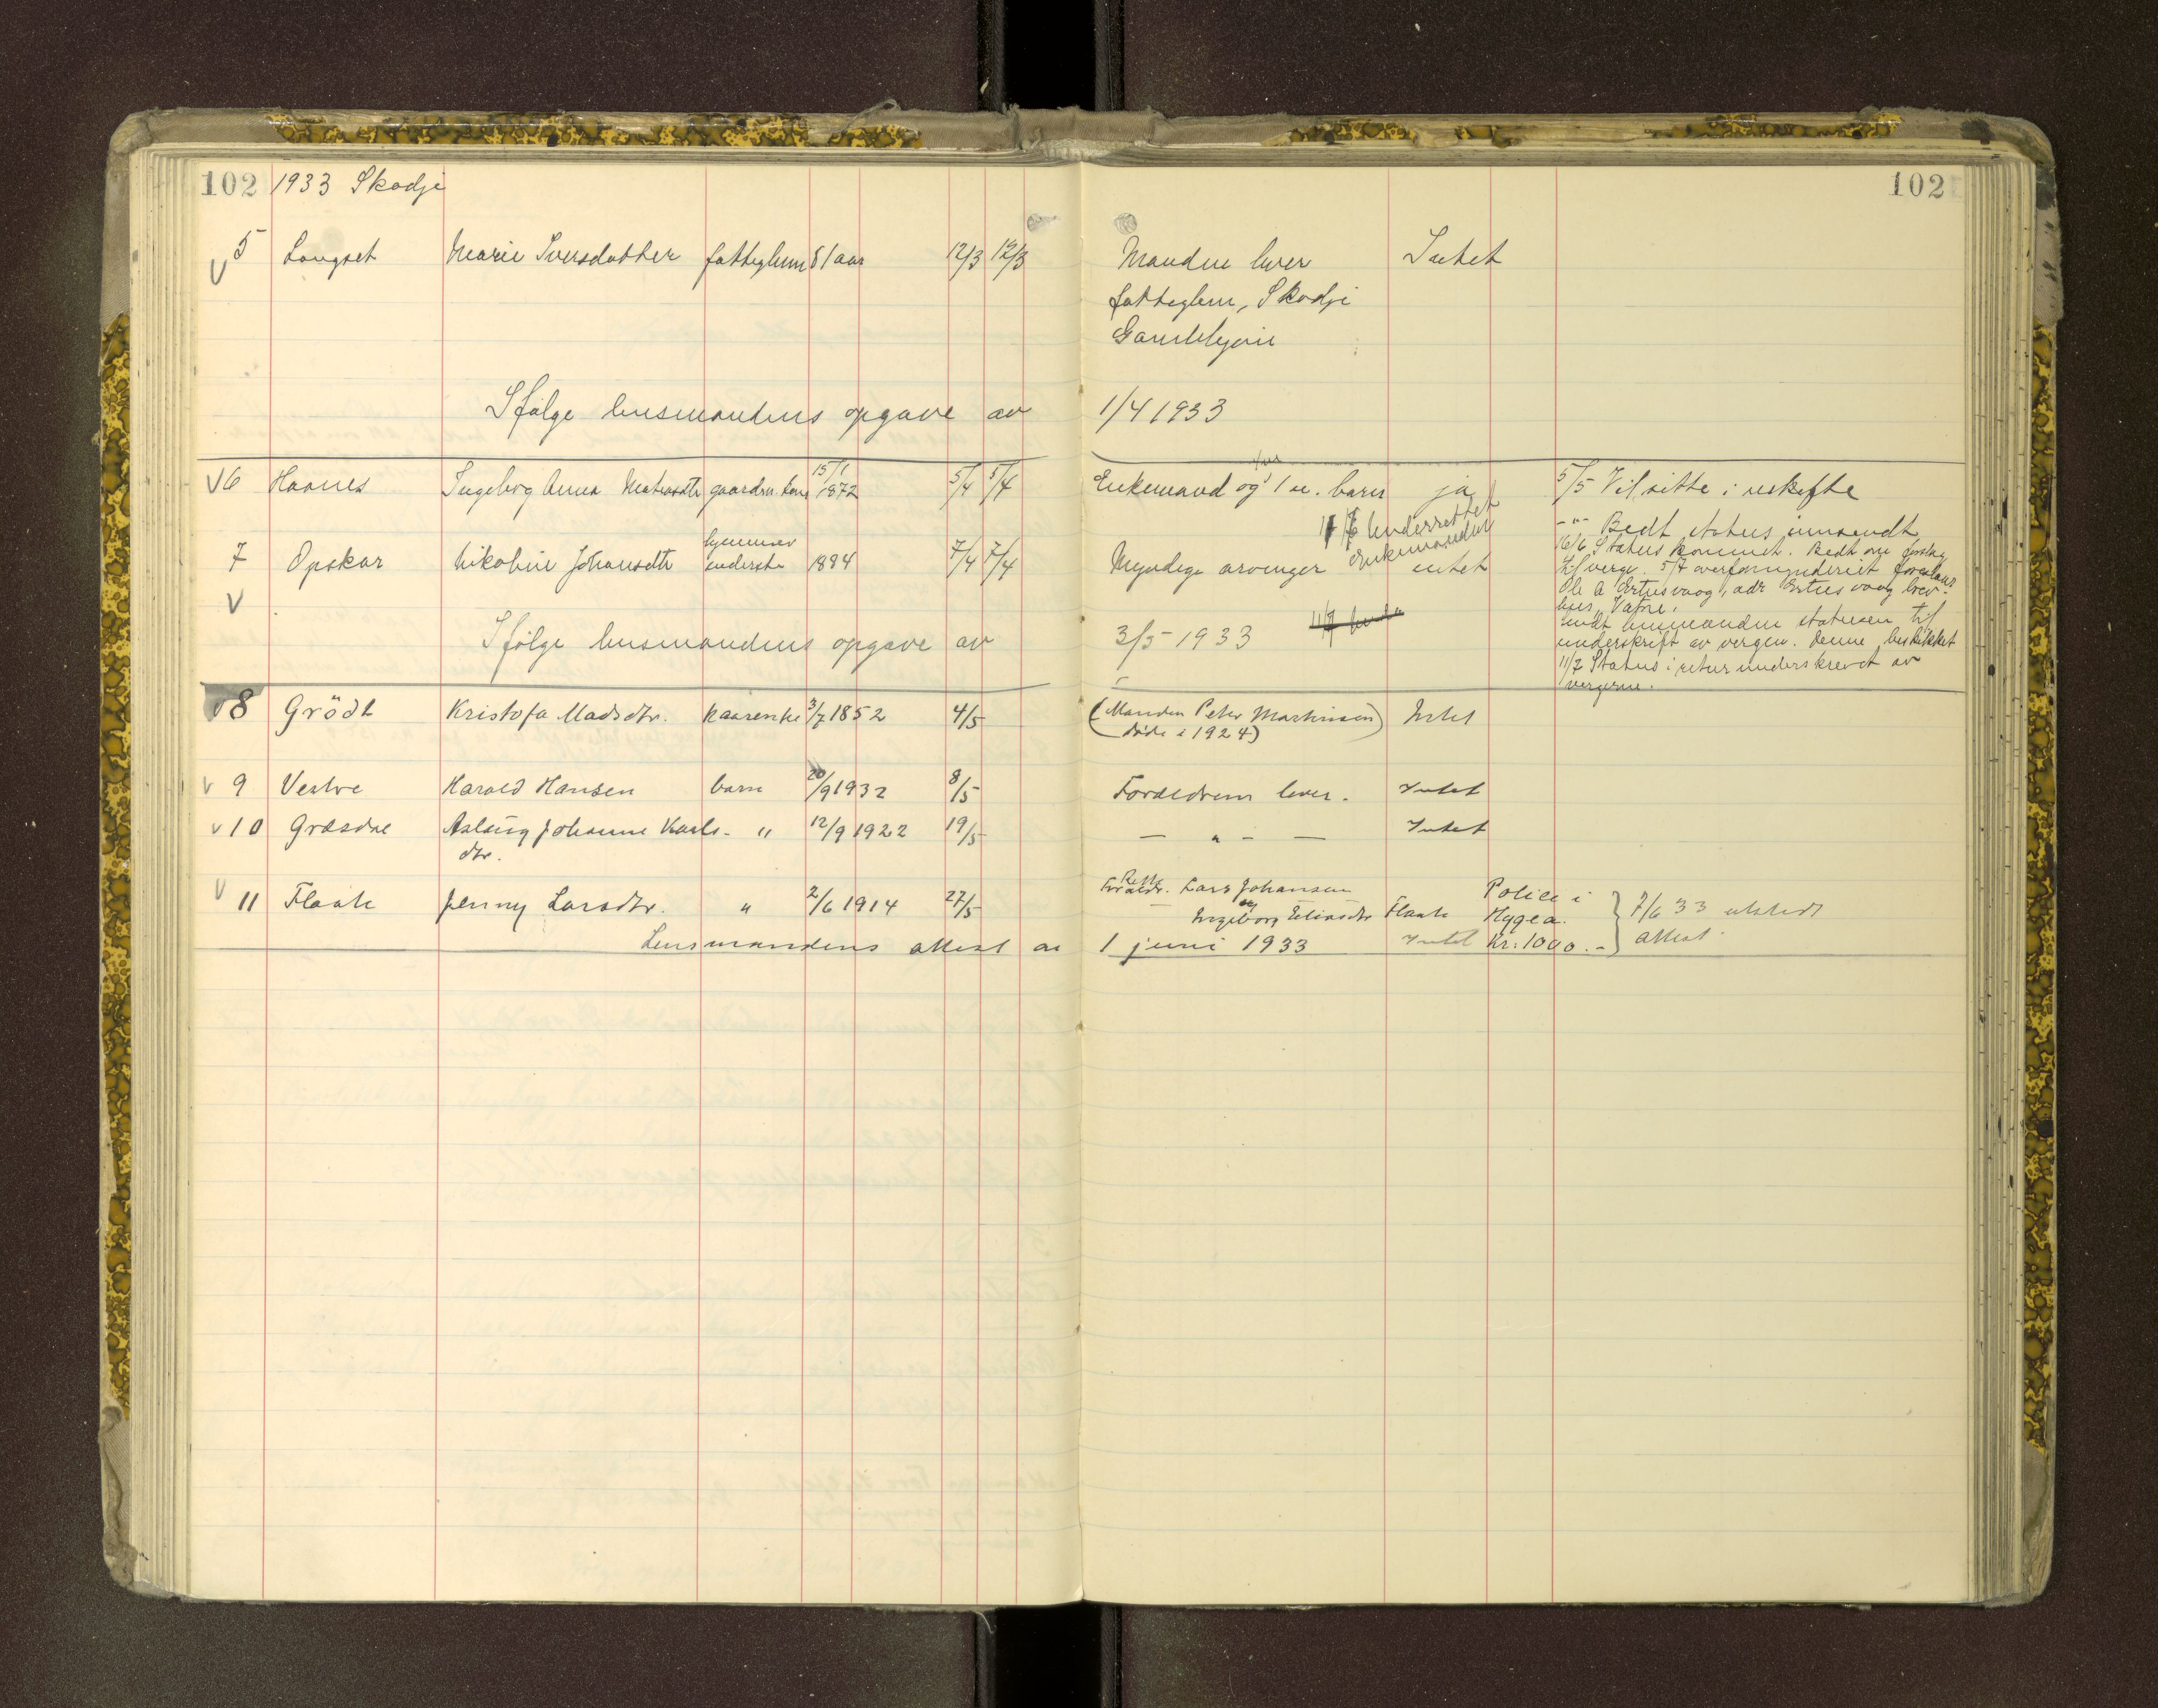 102 1933 Skodje 102
5 Langset Marie Iversdatter fatteglem 81 aar 12/3 12/3 Manden lever Intet
fatteglem, Skodje
Gamlehjem
Ifølge lensmandens opgave av 1/4 1933
6 Haanes Ingebog Anna gaardm. kone 15/1 1872 5/4 5/4 Enkemand og 1 u. barn ja 5/5 Vil sitte i uskifte
11/7 Underrettet enkemanden
-"- Bedt status innsendt
7 Opskar Nikoline Johansdtr 1894 7/4 7/4 Myndige arvinger intet
16/6 Status kommet. Bedt om forslag
til verge. 5/7 overformynderiet foreslaar
Ole A Ertesvaag, adr Ertesvaag brev-
hus, Vatne.
sendt lensmanden statusen til
underskrift av vergen. Denne beskikket
Ifølge lensmandens opgave av 3/5 1933
11/7 Status i retur underskrevet av
vergerne.
8 Grödt Kristofa Madsdtr. kaarenke 3/7 1852 4/5 (Manden Peter Martinsen Intet
døde i 1924)
9 Vestre Harald Hansen barn 20/9 1932 8/5 Foreldrene lever. Intet
10 Græsdal Aslaug Johanne Karls- " 12/9 1922 19/5 — " — Intet
dtr.
11 Flaate Jenny Larsdtr. " 2/6 1914 27/5 Foreldr. Lars Johansen Police i
og Ingeborg Eliasdtr Flaate Hygea. 7/6 33 utstedt
Lensmandens attest av 1 juni 1933 Intet Kr: 1000.- attest.